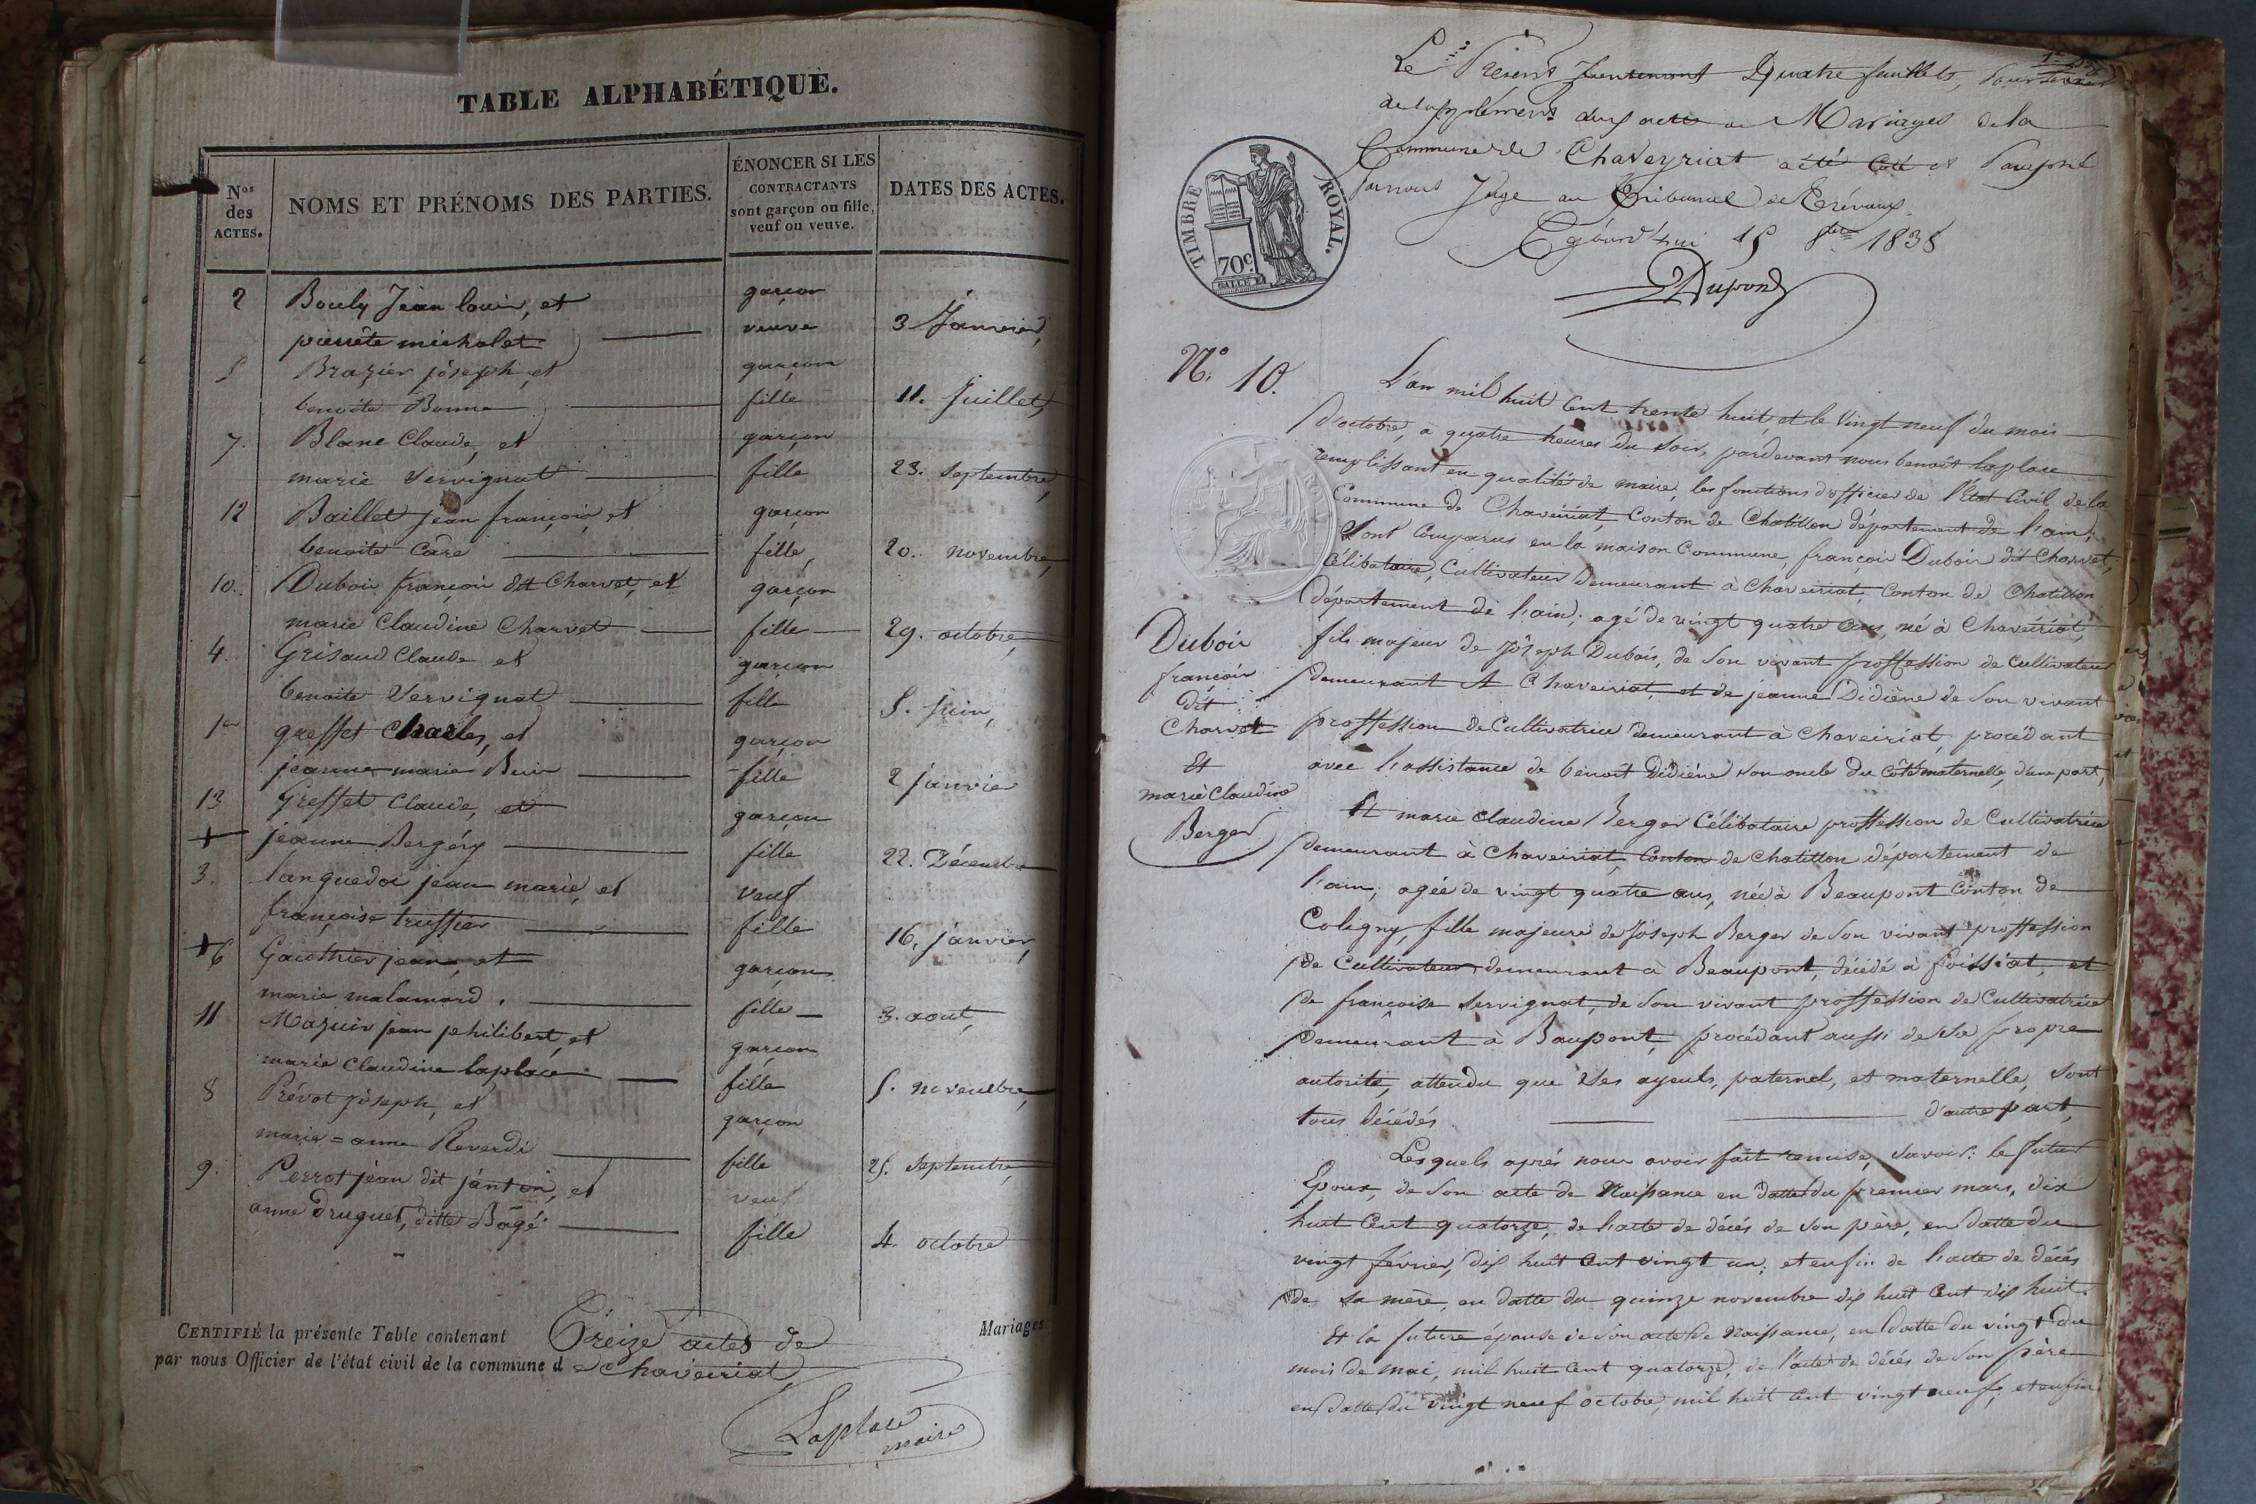 TABLE ALPHABÉTIQUE.
Nos des ACTES.
NOMS ET PRÉNOMS DES PARTIES.
ÉNONCER SI LES CONTRACTANTS sont garçon ou fille, veuf ou veuve.
DATES DES ACTES.
2 Bouly Jean louis, et garçon
pierrête michalet veuve 3 Janvier,
5 Brazier joseph, et garçon
benoite Bonne fille 11. Juillet,
7. Blanc Claude, et garçon
marie Servignat fille 23. Septembre,
12 Baillet jean françois, et garçon
benoite Câre fille, 20. novembre,
10. Dubois françois dit Charvet, et garçon
marie Claudine Charvet fille 29. octobre,
4. Grisaud Claude et garçon
benoite Servignat fille 5. Juin,
1er greffet Charles, et garçon
jeanne marie Buir fille 2 janvier
13 Greffet Claude, et garçon
jeanne Bergéry fille 22. Décembre
3. languedoi jean marie, et veuf
françoise truffier fille 16. janvier,
6 Gauthier jean, et garçon
marie malamard. fille 3. août,
11 Mazuir jean philibert, et garçon
marie Claudine laplace fille 5. novembre,
8 Prévot joseph, et garçon
marie=anne Reverdi fille 25. Septembre,
9. Perrot jean dit jânton, et veuf
anne Druguet, ditte Bâgé fille 4. octobre
CERTIFIÉ la présente Table contenant Treize actes de Mariages
par nous Officier de l'état civil de la commune de Chaveiriat,
Laplace
maire
Le Présent Quatre feuillets, pour servir
de supplément aux actes de Mariages de la
Commune de Chaveyriat a été Coté et Paraphé
Par nous Juge au Tribunal de Trévoux.
Cejourd'hui 15 8bre 1838
Dupond
TIMBRE ROYAL.
70c.
N° 10.
L'an mil huit Cent trente huit, et le Vingt neuf du mois
D'octobre, a quatre heures du Soir, pardevant nous benoît laplace
remplissant en qualité de maire, les fonctions d'officier de l'Etat Civil de la
Commune de Chaveiriat, Conton de Chatillon département de l'ain;
Sont Comparus en la maison Commune, françois Dubois dit Charvet,
Célibataire, Cultivateur Demeurant à Chaveiriat, Conton de Chatillon
département de l'ain: agé de vingt quatre ans, né à Chaveiriat,
fils majeur de joseph Dubois, de Son vivant proffession de Cultivateur
Demeurant A Chaveiriat, et de jeanne Didiène de Son vivant
proffession de Cultivatrice demeurant à Chaveiriat, procédant
avec l'assistance de benoit Didiéne Son oncle du Côté maternelle, d'une part,
Et marie Claudine Berger Célibataire proffession de Cultivatrice
Demeurant à Chaveiriat, Conton de Chatillon département de
l'ain, agée de vingt quatre ans, née à Beaupont Conton de
Coligny, fille majeure de Joseph Berger de Son vivant proffession
de Cultivateur demeurant à Beaupont, décédé à foissiat, et
De françoise Servignat, de Son vivant proffession de Cultivatrice
Demeurant à Baupont, procédant aussi de Sa propre
autorité, attendu que Ses ayeuls, paternel, et maternelle, Sont
tous Décédés d'autre part,
Dubois
françois
dit
Charvet
Et
marie Claudine
Berger
Lesquels aprés nous avoir fait remise, Savoir: le futur
Epoux, de Son acte de Naissance en datte du premier mars, dix
huit Cent quatorze, de l'acte de décés de Son père, en datte du
vingt février, dix huit Cent vingt un; et enfin de l'acte de décés
de Sa mère, en datte du quinze novembre dix huit Cent dix huit.
Et la future épouse de Son acte de Naissance, en datte du vingt du
mois de mai, mil huit Cent quatorze, de l'acte de décés de Son père
en datte du vingt neuf octobre, mil huit Cent vingt neuf, et enfin